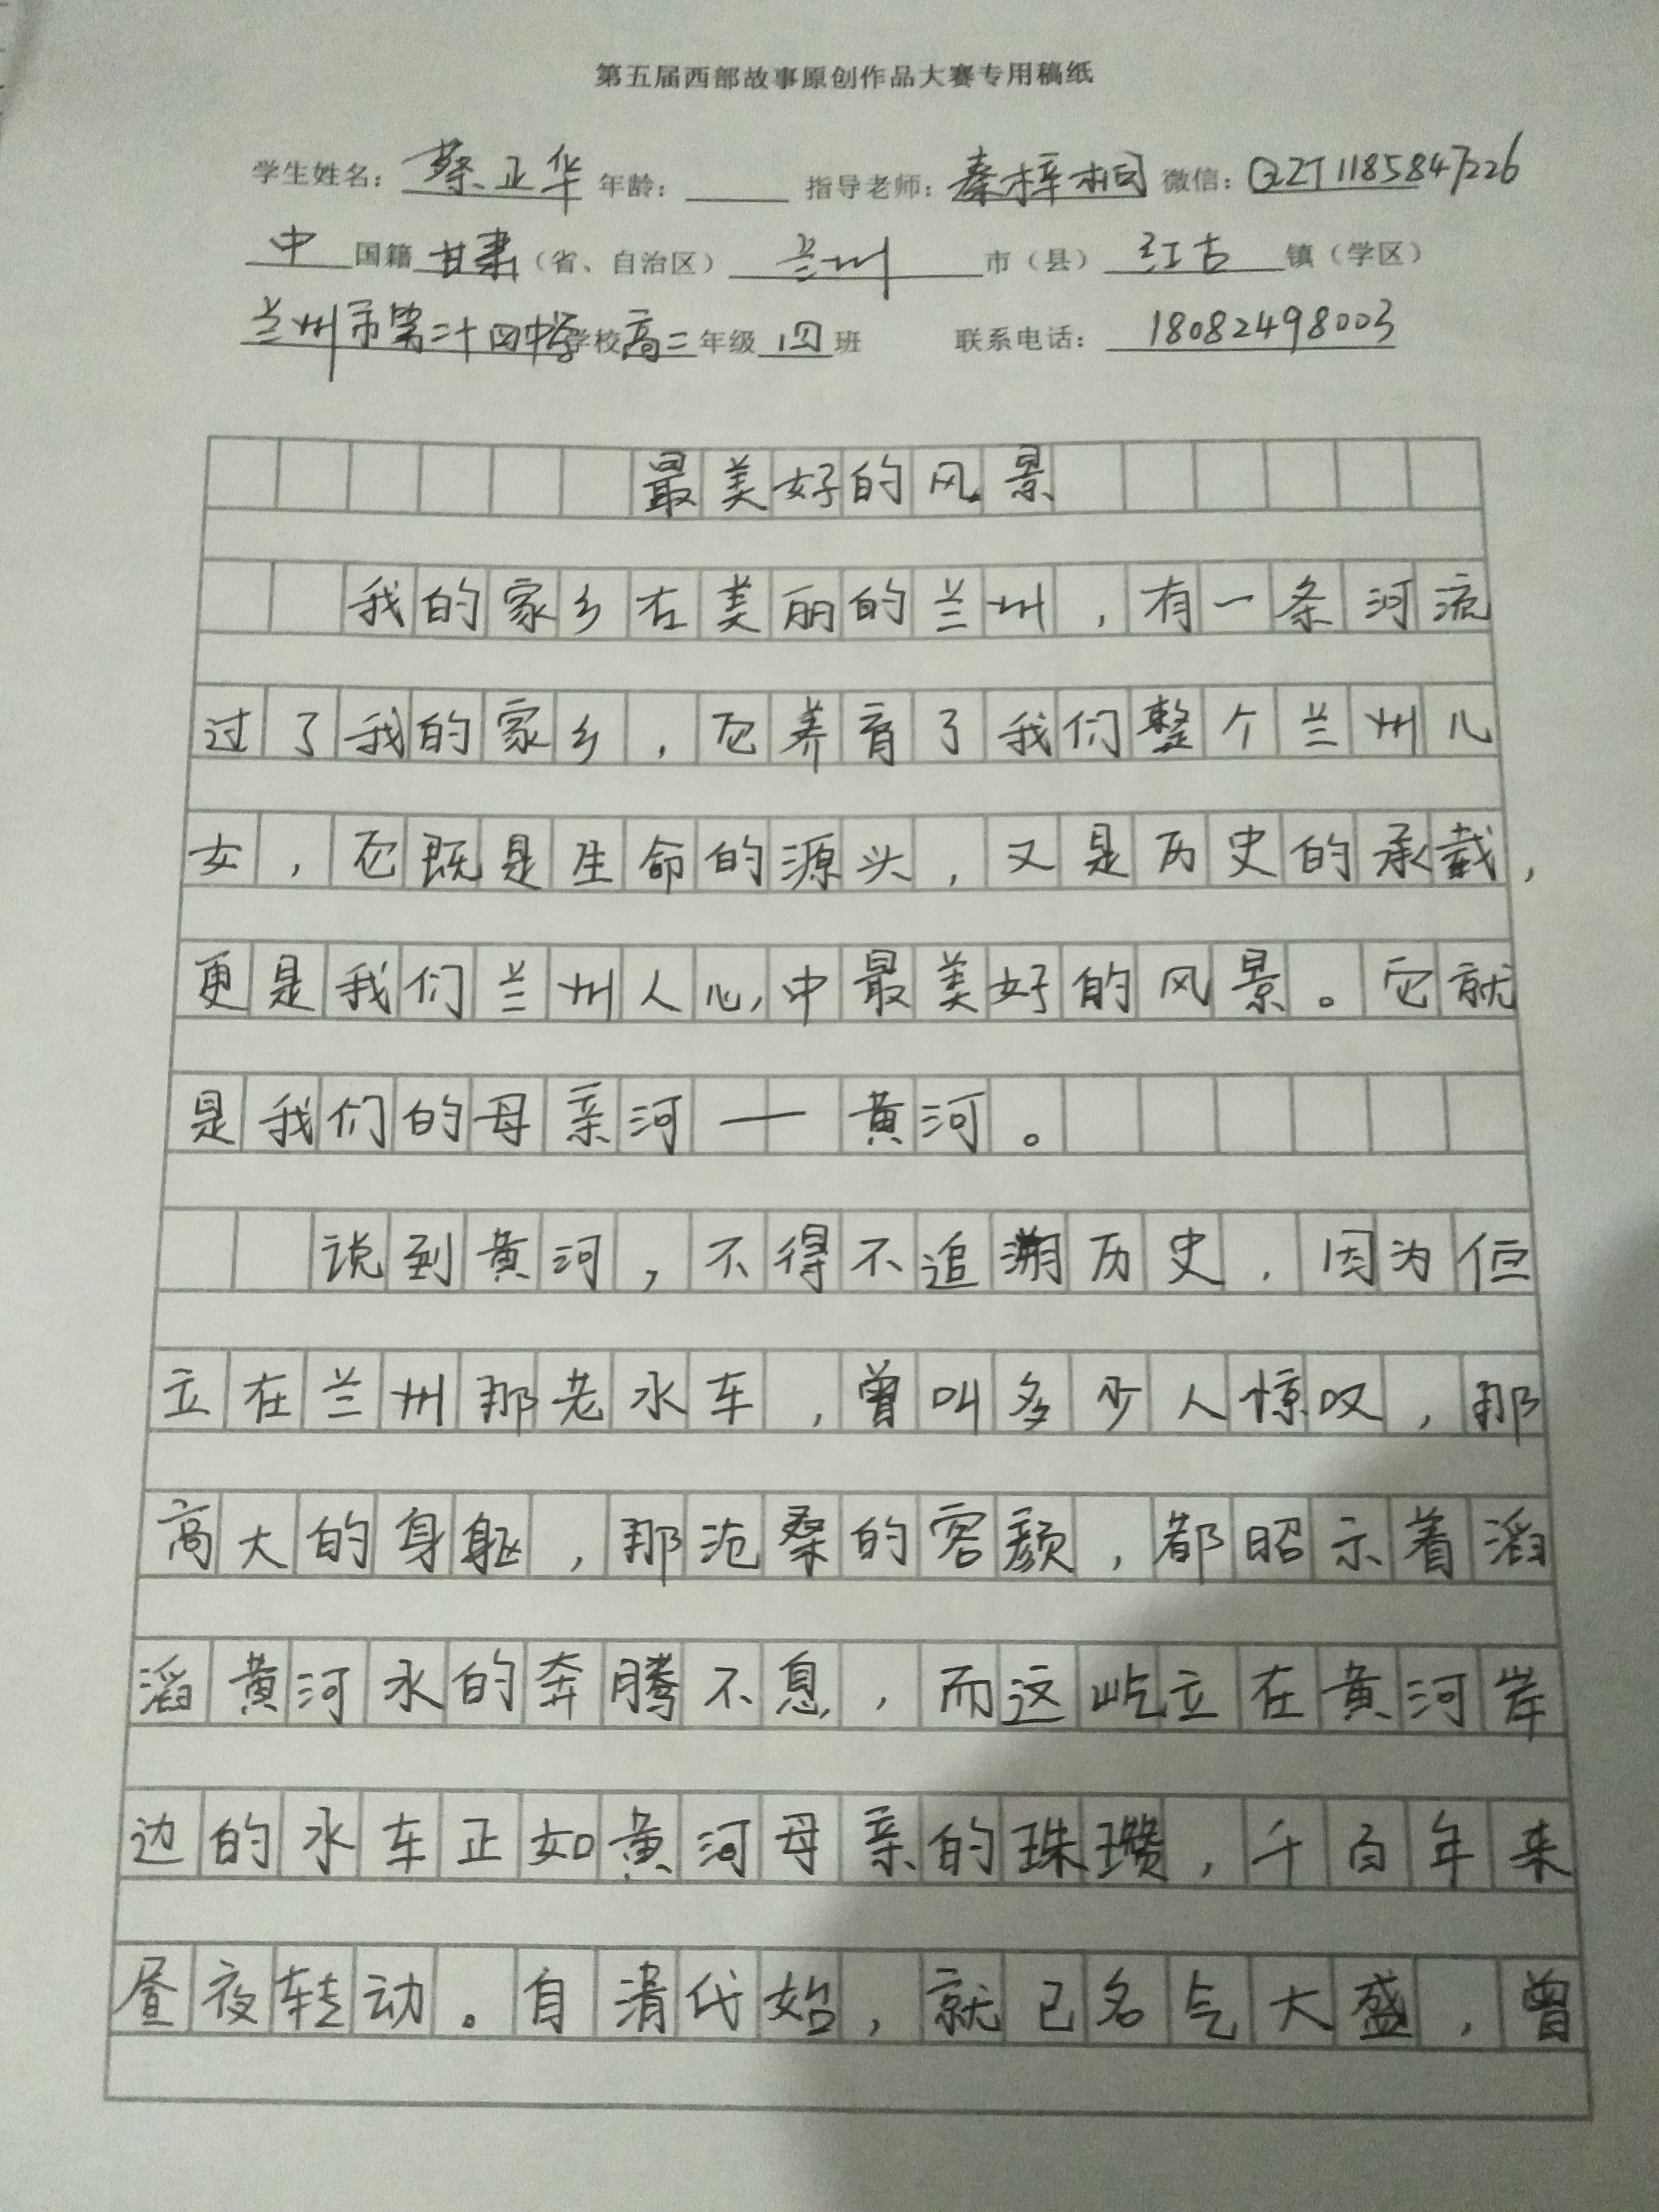 第五届西部故事原创作品大赛专用稿纸
学生姓名：蔡正华 年龄： 指导老师：秦梓桐 微信：QZT1185847226
中 国籍 甘肃（省、自治区） 兰州 市（县） 红古 镇（学区）
兰州市第二十四中学 学校 高二 年级 四 班 联系电话：18082498003
最美好的风景
我的家乡在美丽的兰州，有一条河流
过了我的家乡，它养育了我们整个兰州儿
女，它既是生命的源头，又是历史的承载，
更是我们兰州人心中最美好的风景。它就
是我们的母亲河——黄河。
说到黄河，不得不追溯历史，因为伫
立在兰州那老水车，曾叫多少人惊叹，那
高大的身躯，那沧桑的容颜，都昭示着滔
滔黄河水的奔腾不息，而这屹立在黄河岸
边的水车正如黄河母亲的珠瓒，千百年来
昼夜转动。自清代始，就已名气大盛，曾